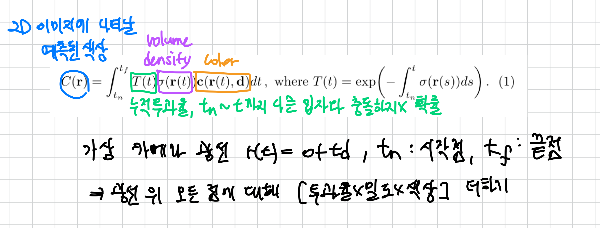 2D 이미지에 나타날
예측된 색상
volume
density
color
C(r) = ∫_{t_n}^{t_f} T(t)σ(r(t))c(r(t), d)dt , where T(t) = exp(−∫_{t_n}^{t} σ(r(s))ds) . (1)
누적투과율, t_n ~ t까지 다른 입자와 충돌하지X 확률
가상 카메라 광선 r(t) = o+td , t_n : 시작점, t_f : 끝점
⇒ 광선 위 모든 점에 대해 [투과율X밀도X색상] 더하기